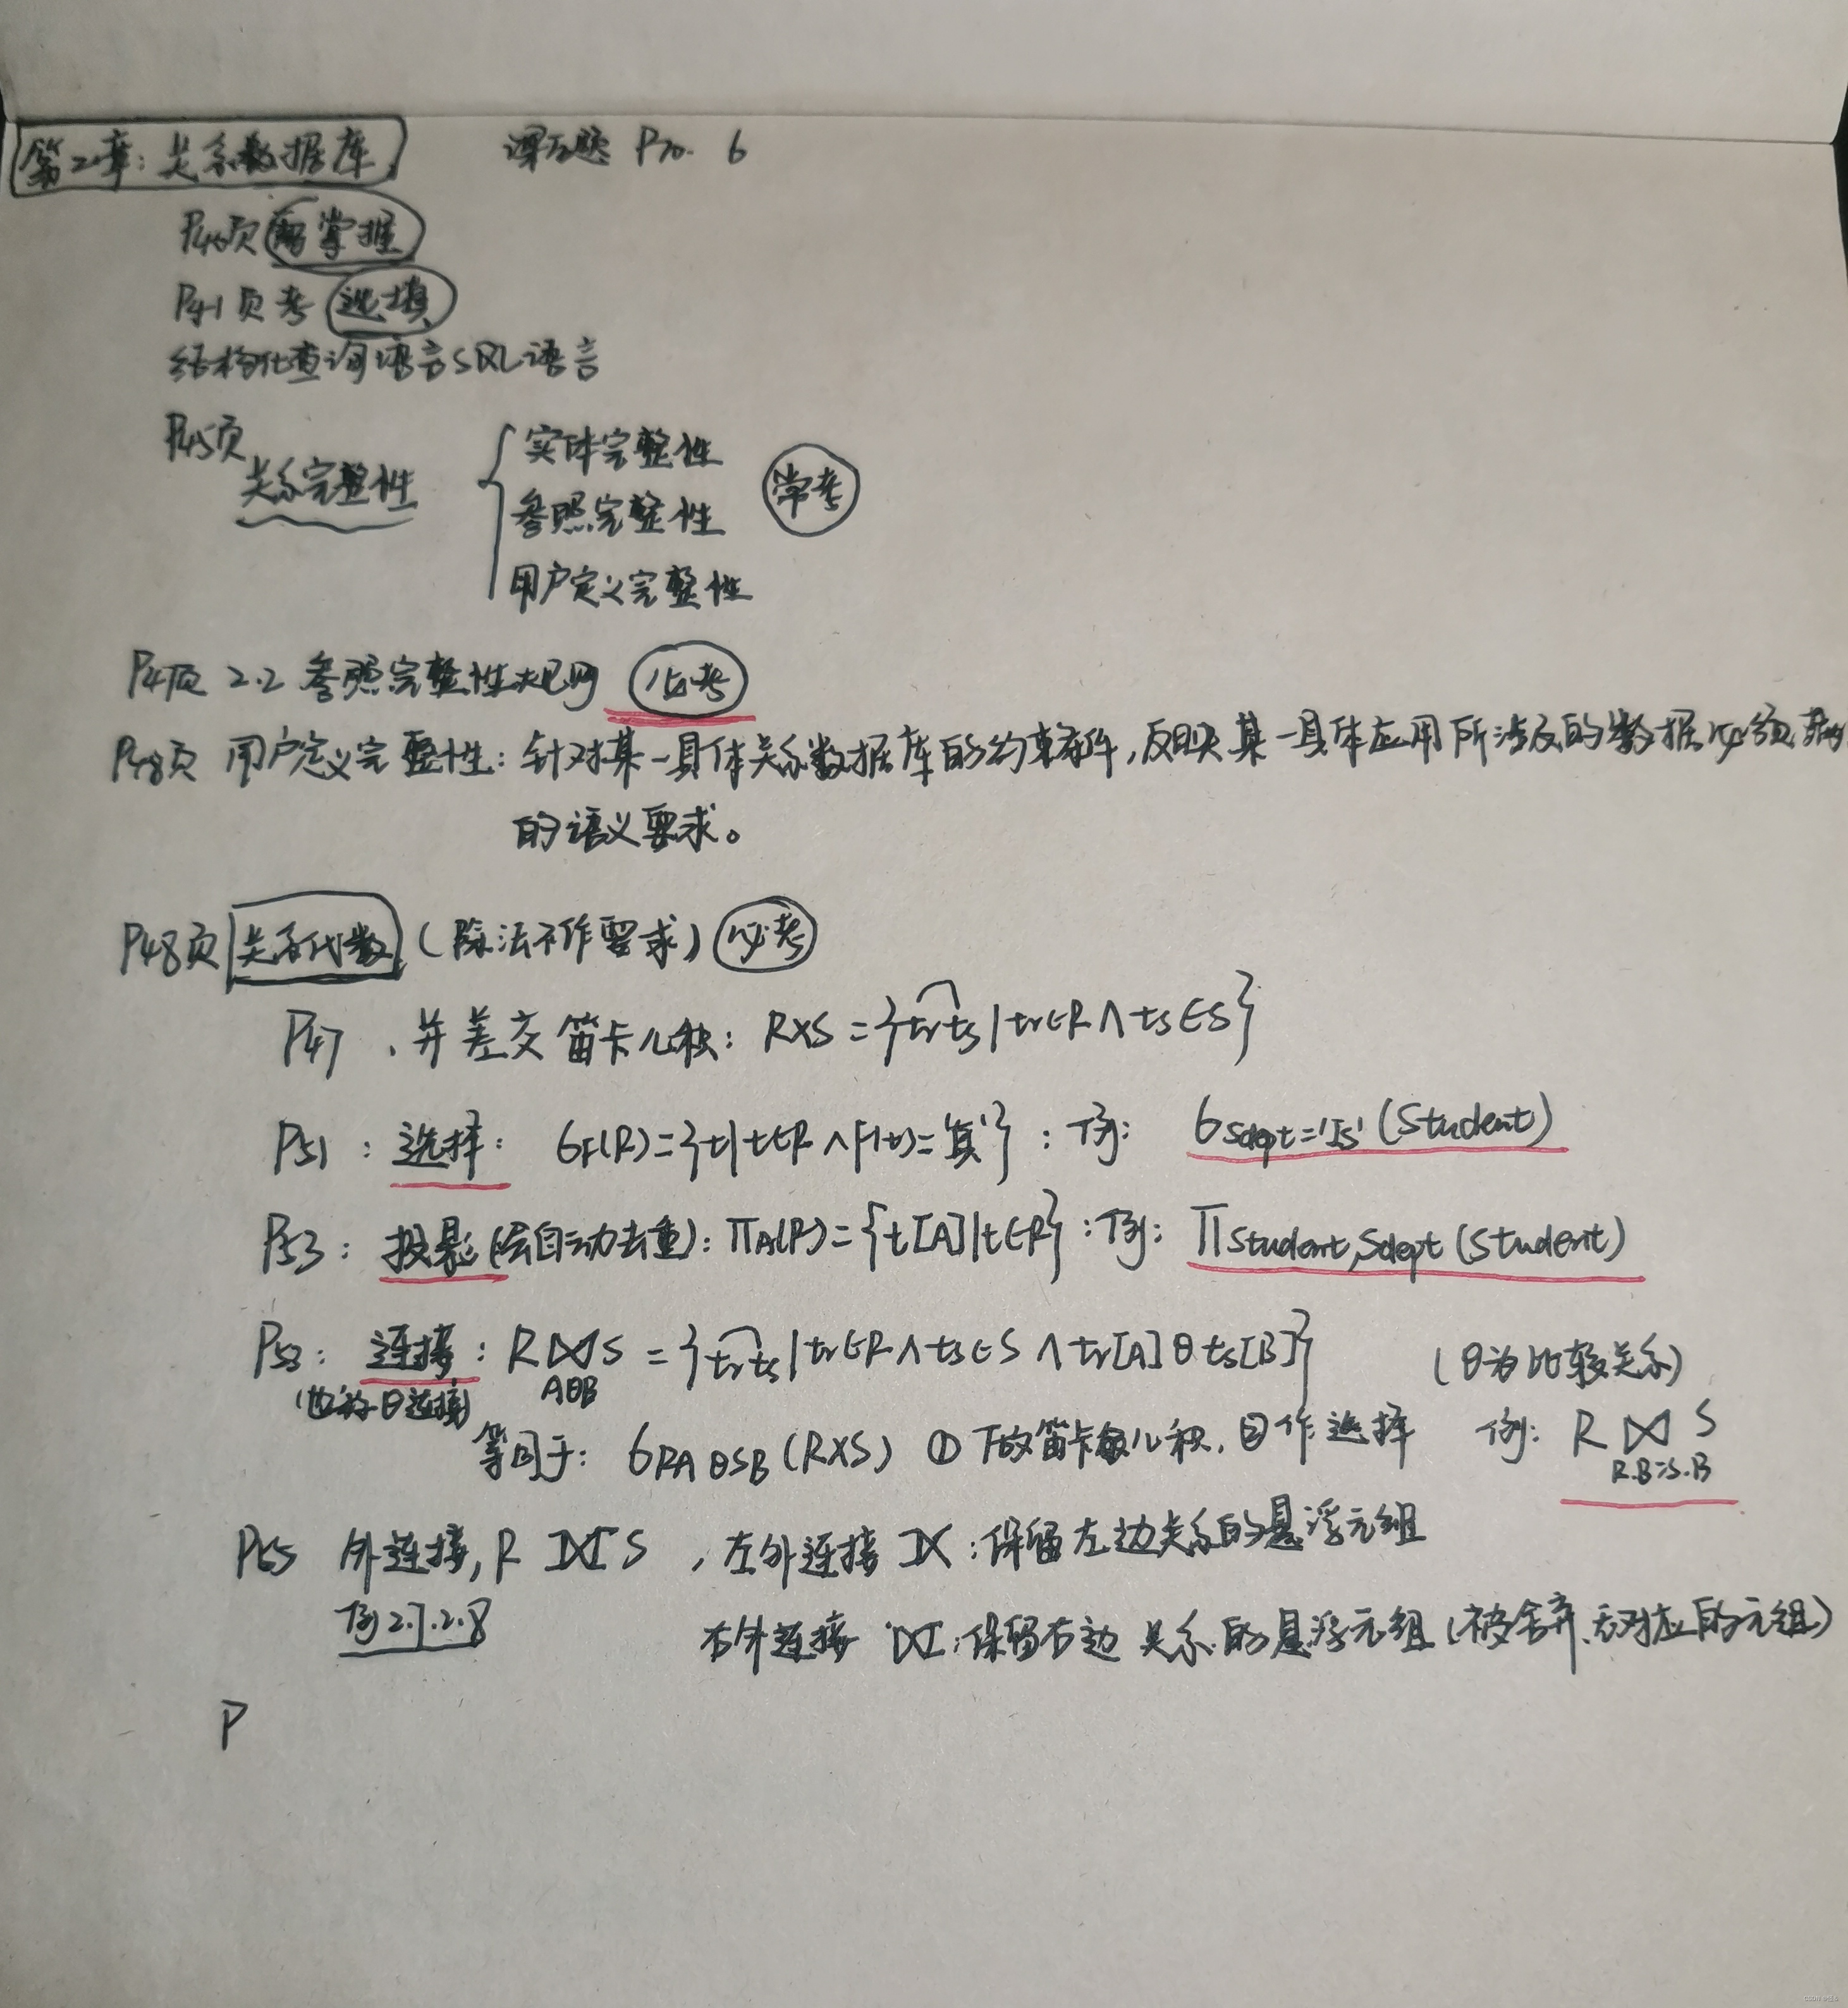 第二章:关系数据库 课后题 P70. 6
P40页 需掌握
P41页考 选填
结构化查询语言SQL语言
P45页
关系完整性
实体完整性
参照完整性
用户定义完整性
常考
P47页 2.2 参照完整性规则 必考
P48页 用户定义完整性:针对某一具体关系数据库的约束条件,反映某一具体应用所涉及的数据必须满足
的语义要求。
P48页 关系代数 (除法不作要求) 必考
P47 、并差交笛卡儿积: R×S = {tr⌒ts | tr∈R ∧ ts∈S}
P51 : 选择: σF(R)={t|t∈R ∧ F(t)='真'} : 例: σSdept='IS'(Student)
P53 : 投影(会自动去重): ΠA(R)={t[A]|t∈R} : 例: ΠStudent,Sdept(Student)
P53: 连接: R⋈S = {tr⌒ts | tr∈R ∧ ts∈S ∧ tr[A]θts[B]} (θ为比较关系)
(也称θ连接) AθB
等同于: σRAθSB(R×S) ①做笛卡儿积, ②作选择 例: R ⋈ S
R.B=S.B
P55 外连接, R ⟗ S , 左外连接 ⟕ :保留左边关系的悬浮元组
例2.7.2.8
右外连接 ⟖ :保留右边关系的悬浮元组(被舍弃、无对应的元组)
P